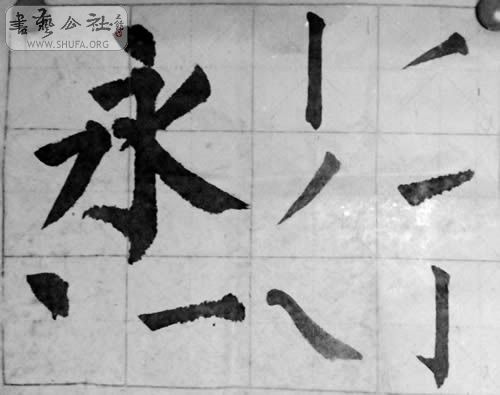 書藝公社
WWW.SHUFA.ORG
永